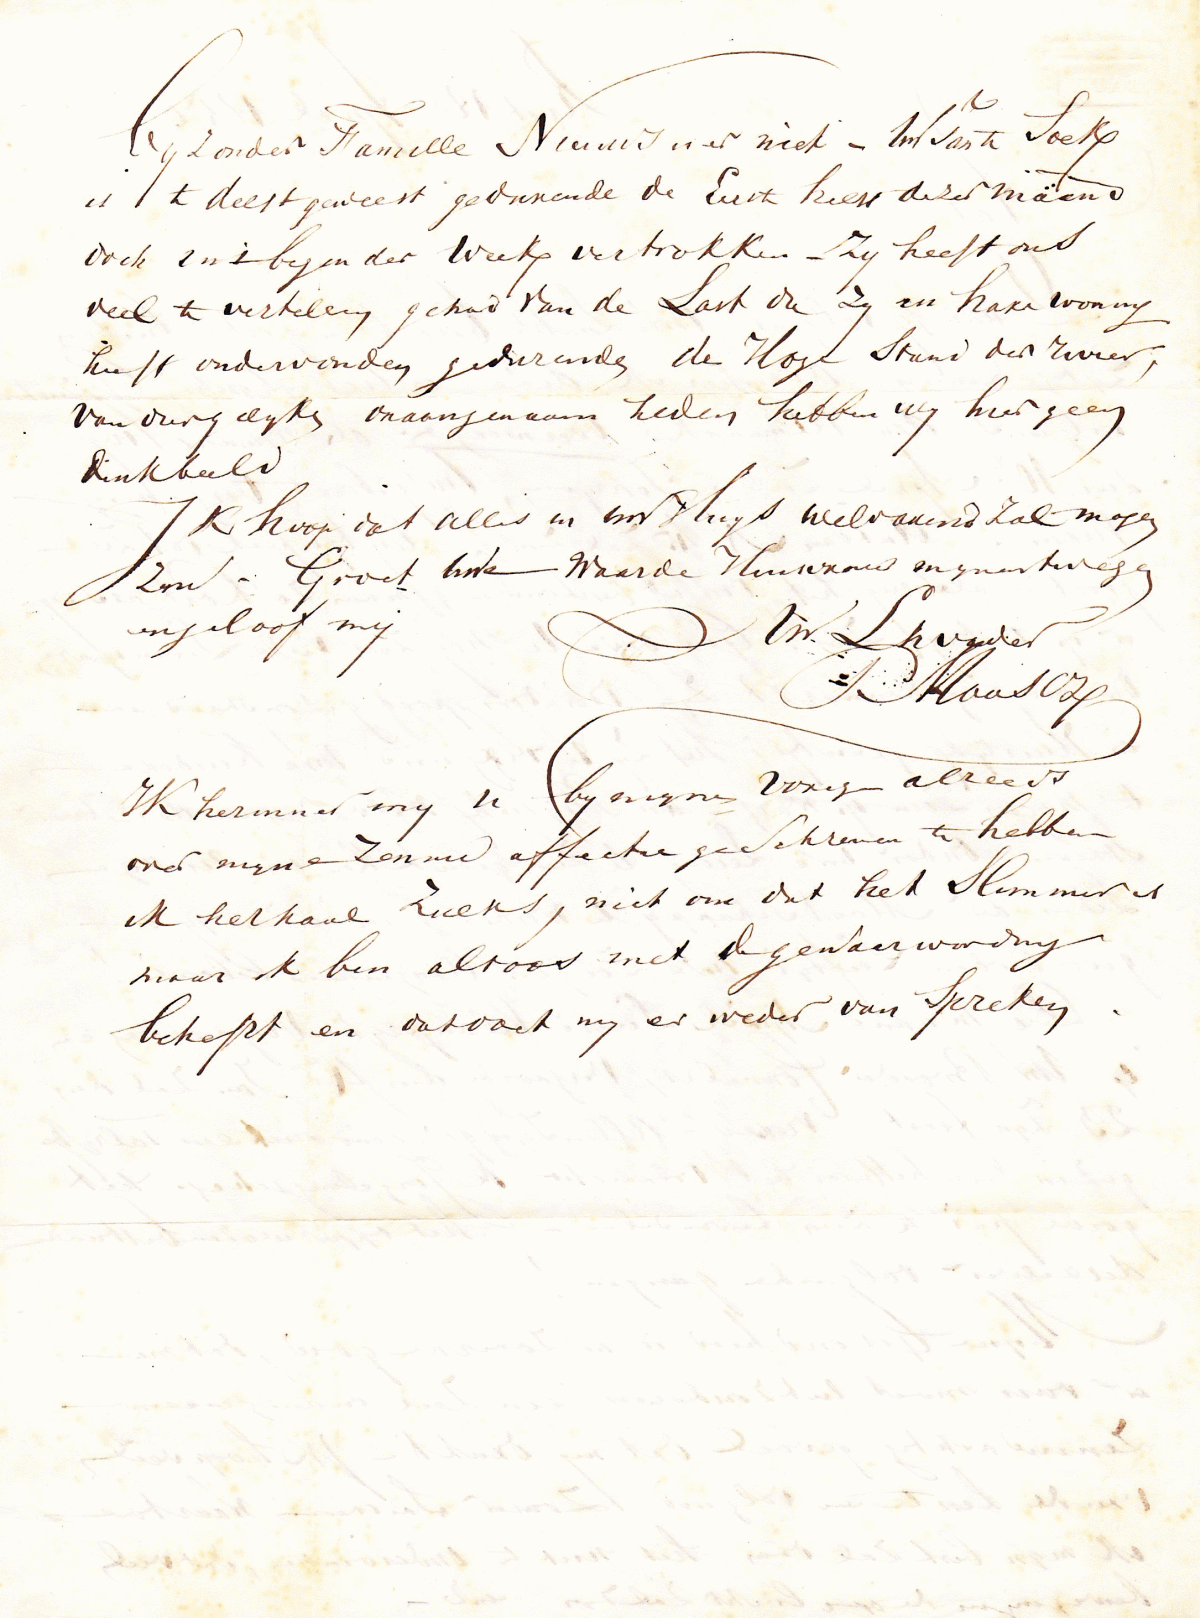 Byzonder Famille Nieuws is er niet – Uw Tante Soek
is te deest geweest gedurende de Eerste helft dezer maand
doch in 't begin der Week vertrokken – Zy heeft ons
veel te vertellen gehad van de Last die Zy in hare woning
heeft ondervonden gedurende de Hoge Stand der rivier,
van diergelyke onaangenaamheden hebben wy hier geen
denkbeeld
Ik hoop dat alles in uw Huys welvarend zal mogen
zyn – Groet Uwe Waarde Huisvrouw mynentwegen
en geloof mij
Uw
Maas CZ
Ik herinner my U by myne vorige alreeds
over myne Zenuw affectie geschreven te hebben
ik herhaal Zulks, niet om dat het Slimmer is
maar ik ben altoos met de gewaarwording
behept en dat doet my er weder van Spreken.